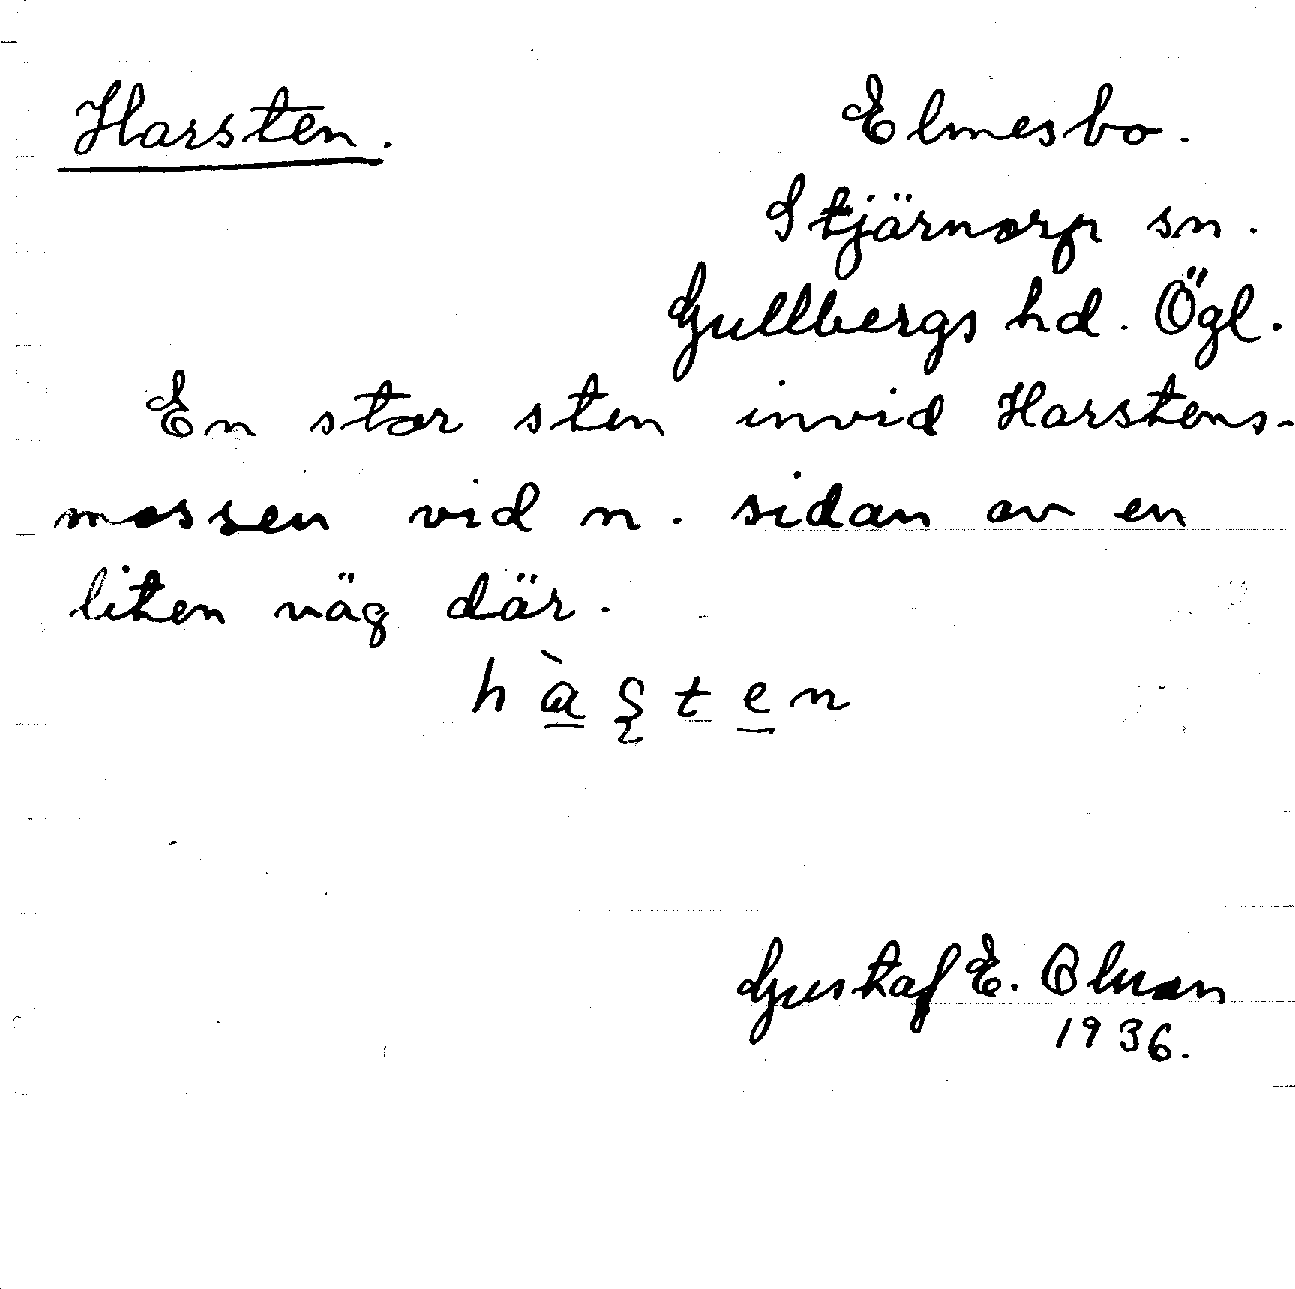 Harsten.
Elmesbo.
Stjärnorp sn.
Gullbergs hd. Ögl.
En stor sten invid Harstens-
mossen vid n. sidan av en
liten väg där.
Gustaf E.
1936.